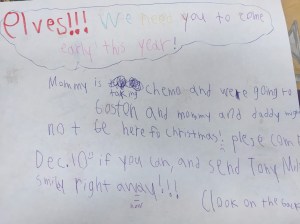 elves!!! We need you to come
early this year!
Mommy is taking chemo and we're going to
Boston and mommy and daddy
not be here fo christmas! plese com
Dec. 10 if you can, and send Tony
right away!!!
(look on the back